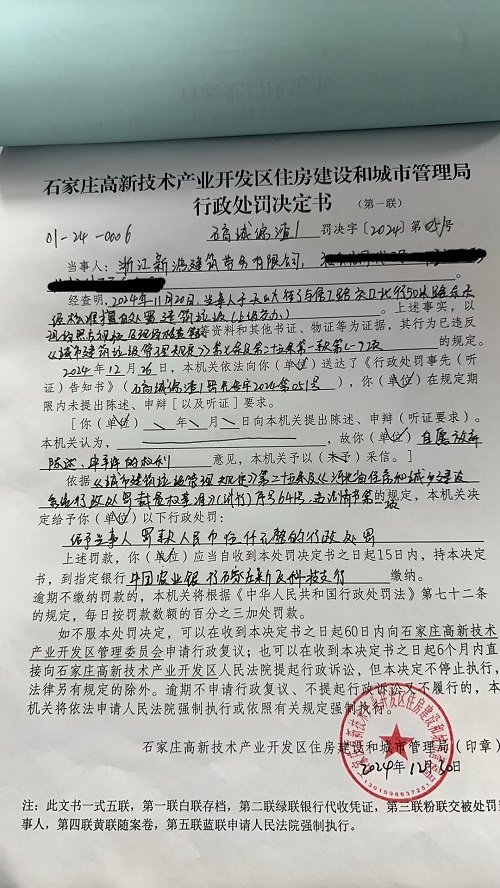 石家庄高新技术产业开发区住房建设和城市管理局
行政处罚决定书 （第一联）
01-24-0006 石高城综渣1 罚决字［2024］第051号
当事人：浙江新 建筑劳务有限公司，
经查明，2024年11月20日，当事人于天山大街与 路交口北行50米路东未
经核准擅自处置建筑垃圾 。上述事实，以
现场照片 等资料和其他书证、物证等为证据，其行为已违反
《城市建筑垃圾管理规定》第七条及第二十五条第一款第（一）项 的规定。
2024年12月26日，本机关依法向你（单位）送达了《行政处罚事先（听
证）告知书》（石高城综渣1罚先告字2024第051号），你（单位）在规定期
限内未提出陈述、申辩［以及听证］要求。
［你（单位） 年 月 日向本机关提出陈述、申辩（听证要求）。
本机关认为， ，故你（单位）自愿放弃
陈述、申辩的权利 意见，本机关予以（未予）采信。］
依据《城市建筑垃圾管理规定》第二十五条及《河北省住房和城乡建设
系统行政处罚裁量权基准》（试行）序号64号，违法情节 的规定，本机关决
定给予你（单位）以下行政处罚：
给予当事人罚款人民币 仟元整的行政处罚
上述罚款，你（单位）应当自收到本处罚决定书之日起15日内，持本决定
书，到指定银行 中国农业银行石家庄 科技支行 缴纳。
逾期不缴纳罚款的，本机关将根据《中华人民共和国行政处罚法》第七十二条
的规定，每日按罚款数额的百分之三加处罚款。
如不服本处罚决定，可以在收到本决定书之日起60日内向石家庄高新技术
产业开发区管理委员会申请行政复议；也可以在收到本决定书之日起6个月内直
接向石家庄高新技术产业开发区人民法院提起行政诉讼，但本决定不停止执行，
法律另有规定的除外。逾期不申请行政复议、不提起行政诉讼又不履行的，本
机关将依法申请人民法院强制执行或依照有关规定强制执行。
石家庄高新技术产业开发区住房建设和城市管理局（印章）
2024年12月30日
注：此文书一式五联，第一联白联存档，第二联绿联银行代收凭证，第三联粉联交被处罚当
事人，第四联黄联随案卷，第五联蓝联申请人民法院强制执行。